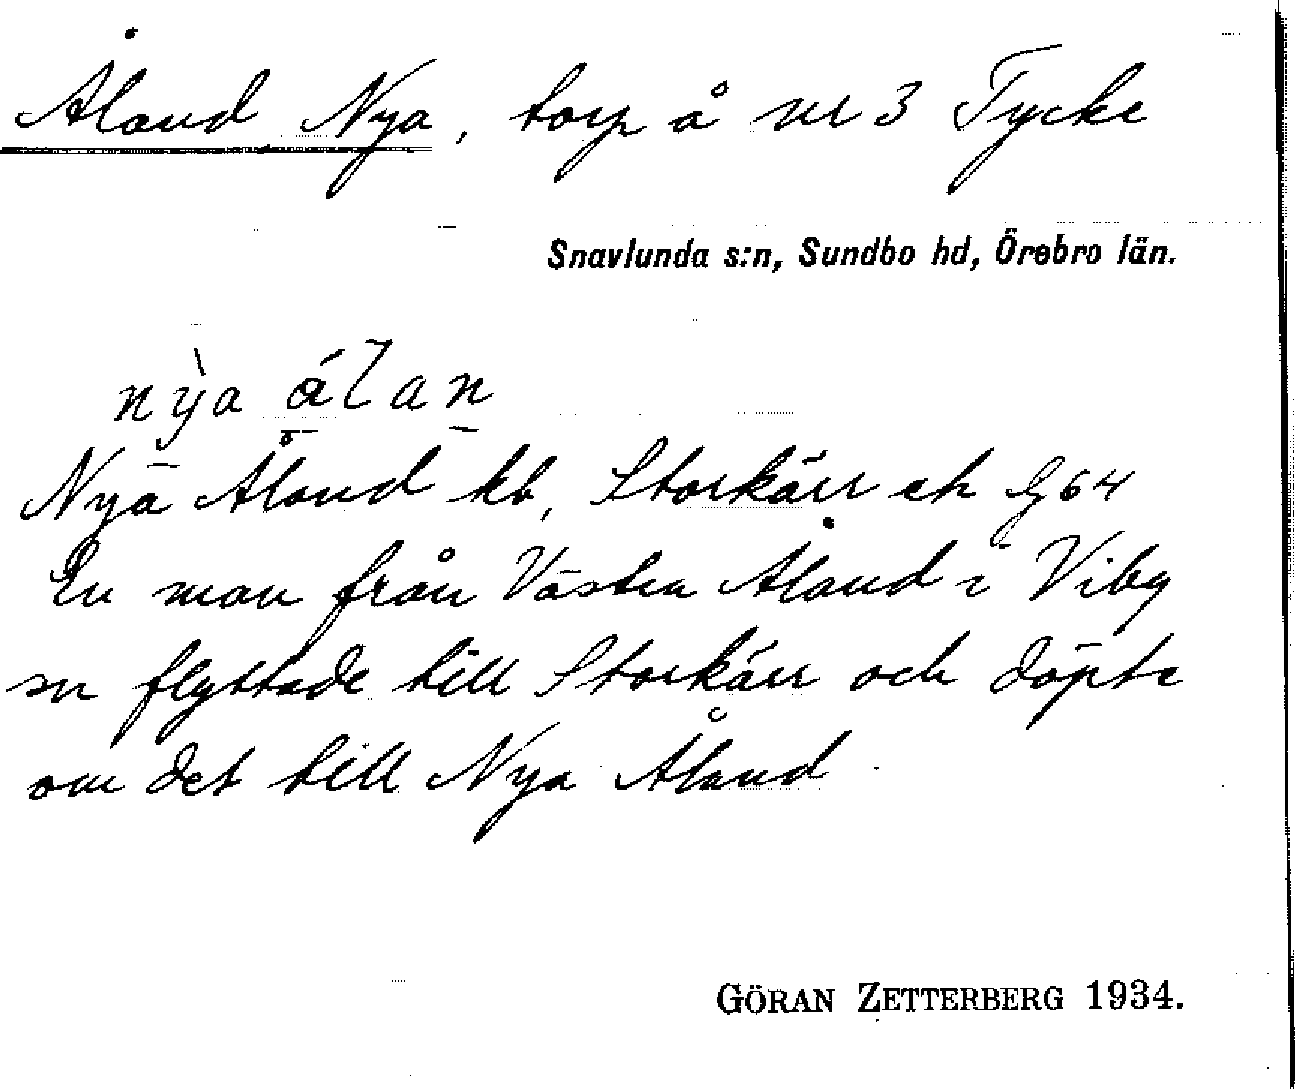 Åland Nya, torp å nr 3 Tycke
Snavlunda s:n, Sundbo hd, Örebro län.
nỳa ålan
Nya Åland kb, Storkärr ek G64
En man från Västra Åland i Viby
sn flyttade till Storkärr och döpte
om det till Nya Åland.
GÖRAN ZETTERBERG 1934.